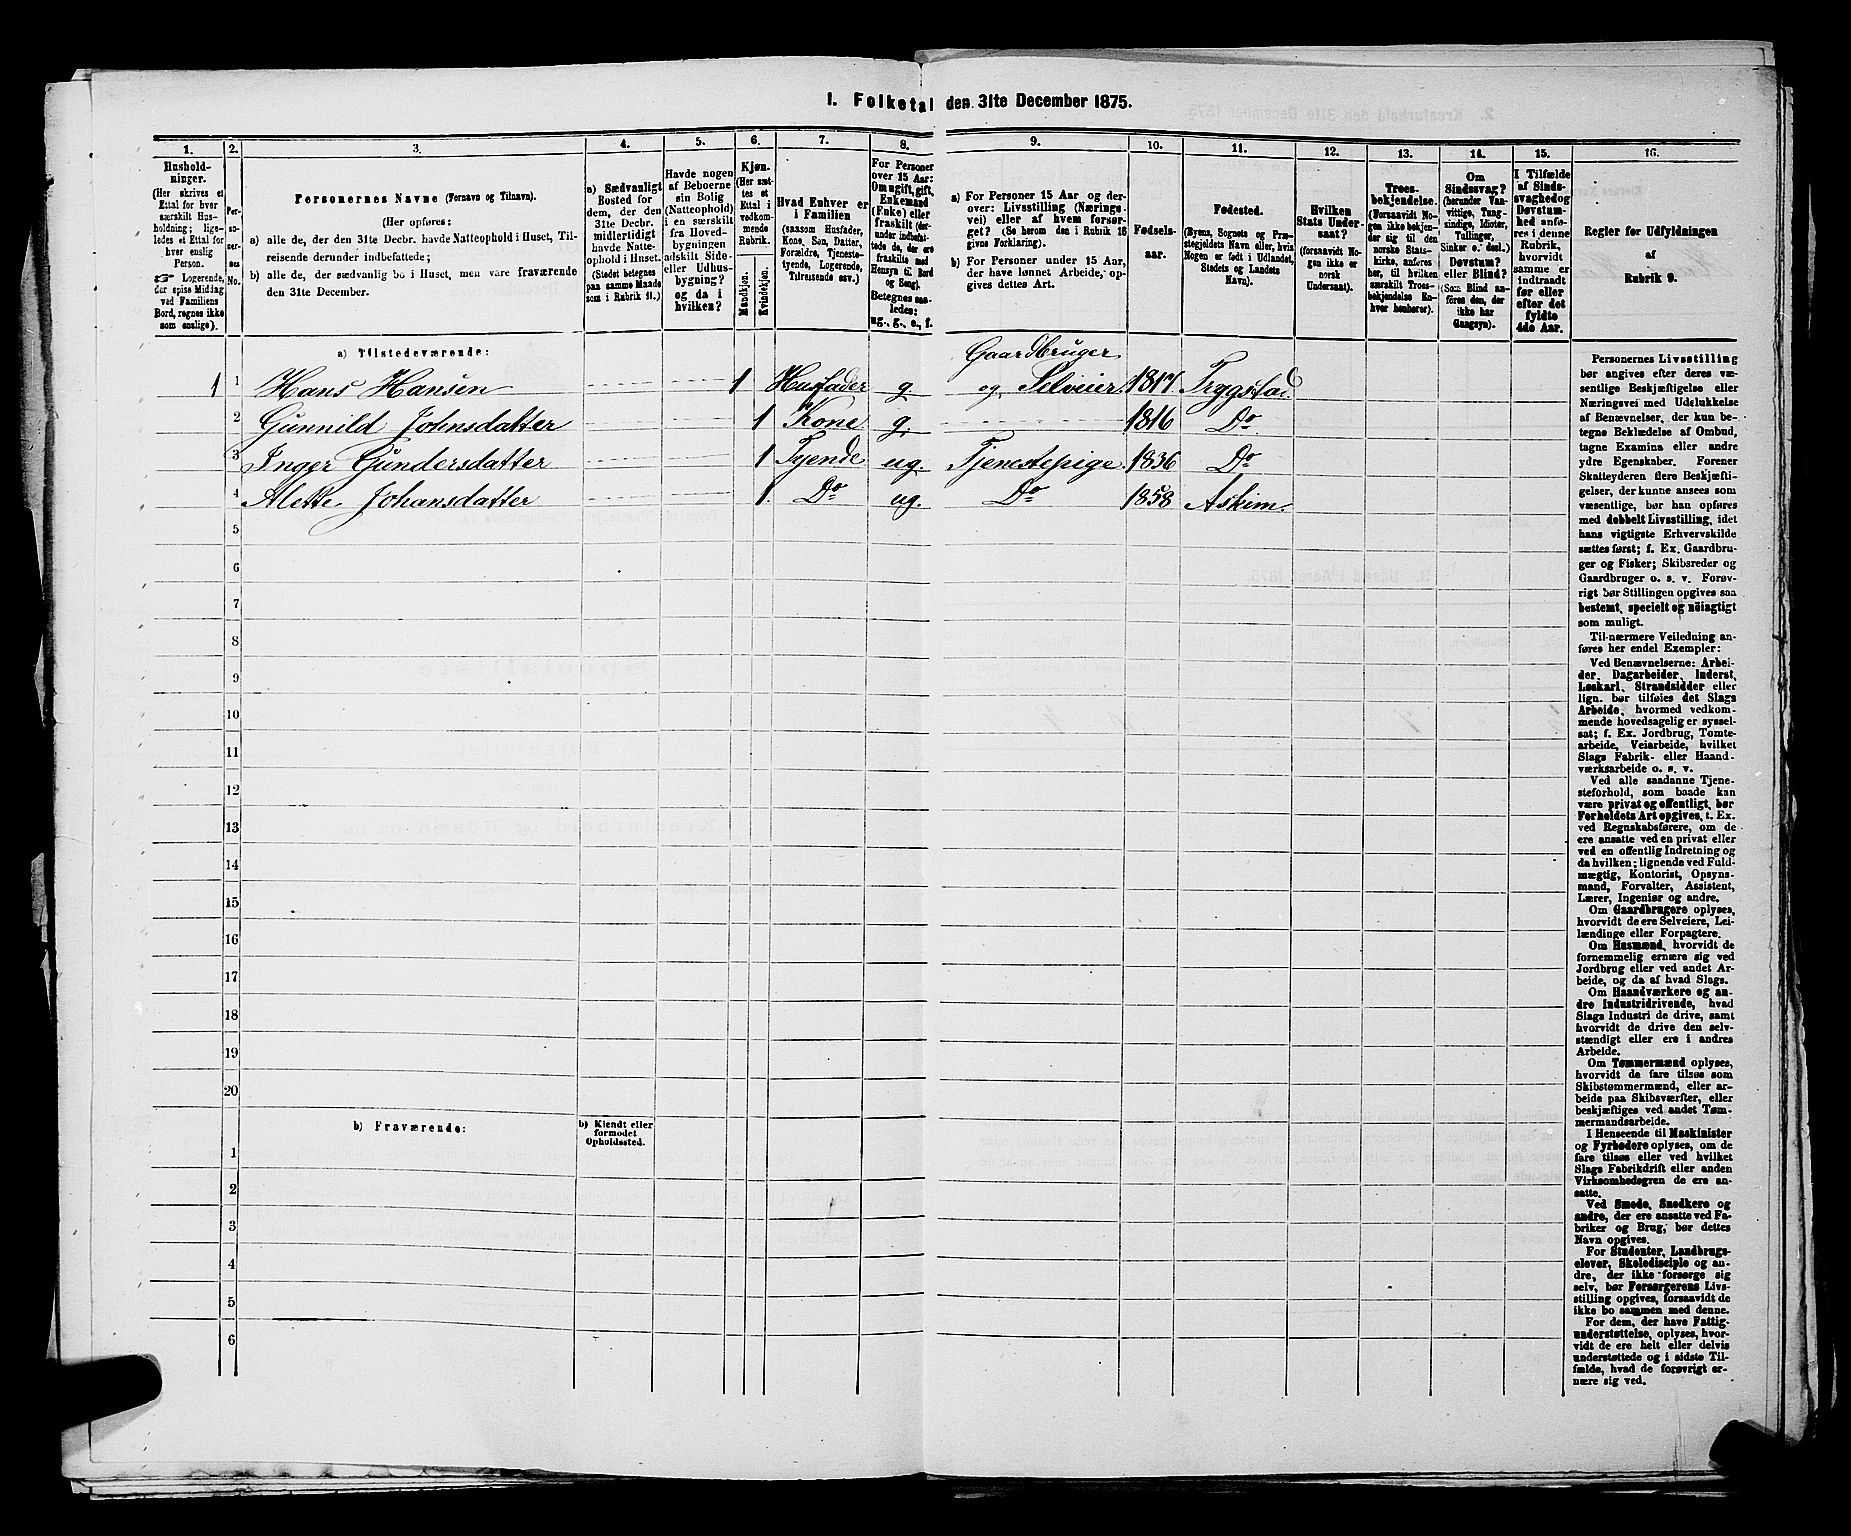 1. Folketal den 31te December 1875.
1. 2. 3. 4. 5. 6. 7. 8. 9. 10. 11. 12. 13. 14. 15. 16.
Hushold-
ninger.
(Her skrives et
Ettal for hver
særskilt Hus-
holdning; lige-
ledes et Ettal for
hver enslig
Person.
☞ Logerende,
der spise Middag
ved Familiens
Bord, regnes ikke
som enslige).
Per-
so-
ner-
nes
No.
Personernes Navne (Fornavn og Tilnavn).
(Her opføres:
a) alle de, der den 31te Decbr. havde Natteophold i Huset, Til-
reisende derunder indbefattede;
b) alle de, der sædvanlig bo i Huset, men vare fraværende
den 31te December.
a) Sædvanligt
Bosted for
dem, der den
31te Decbr.
midlertidigt
havde Natte-
ophold i Huset.
(Stedet betegnes
paa samme Maade
som i Rubrik 11.)
Havde nogen
af Beboerne
sin Bolig
(Natteophold)
i en særskilt
fra Hoved-
bygningen
adskilt Side-
eller Udhus-
bygning?
og da i
hvilken?
Kjøn.
(Her sæt-
tes et
Ettal i
vedkom-
mende
Rubrik.
Mandkjøn.
Kvindekjøn.
Hvad Enhver er
i Familien
(saasom Husfader,
Kone, Søn, Datter,
Forældre, Tjeneste-
tyende, Logerende,
Tilreisende osv.)
For Personer
over 15 Aar:
Om ugift, gift,
Enkemand
(Enke) eller
fraskilt (der-
under indbefat-
tede de, der ere
fraskilte med
Hensyn til Bord
og Seng).
Betegnes saa-
ledes:
ug., g., e., f.
a) For Personer 15 Aar og der-
over: Livsstilling (Nærings-
vei) eller af hvem forsør-
get? (Se herom den i Rubrik 16
givne Forklaring).
b) For Personer under 15 Aar,
der have lønnet Arbeide, op-
gives dettes Art.
Fødsels-
aar.
Fødested.
(Byens, Sognets og Præ-
stegjeldets Navn eller, hvis
Nogen er født i Udlandet,
Stedets og Landets
Navn).
Hvilken
Stats Under-
saat?
(forsaavidt No-
gen ikke er
norsk
Undersaat).
Troes-
bekjendelse.
(Forsaavidt No-
gen ikke bekjen-
der sig til den
norske Stats-
kirke, anføres
her, til hvilken
særskilt Troes-
bekjendelse En-
hver henhører).
Om
Sindssvag?
(herunder Van-
vittige, Tung-
sindige, Idioter,
Tullinger,
Sinker o. desl.)
Døvstum?
eller Blind?
(Som Blind an-
føres den, der
ikke har
Gangsyn).
I Tilfælde
af Sinds-
svaghed og
Døvstum-
hed anfø-
res i denne
Rubrik,
hvorvidt
samme er
indtraadt
før eller
efter det
fyldte
4de Aar.
Regler for Udfyldningen
af
Rubrik 9.
a) Tilstedeværende:
Gaardbruger
1 1 Hans Hansen 1 Husfader g og Selveier 1817 Trygstad
2 Gunnild Johnsdatter 1 Kone g. 1816 Do
3 Inger Gundersdatter 1 Tyende ug. Tjenestepige 1836 Do
4 Alette Johansdatter 1 Do ug. Do 1858 Askim.
5
6
7
8
9
10
11
12
13
14
15
16
17
18
19
20
b) Fraværende:
b) Kjendt eller
formodet
Opholdssted.
1
2
3
4
5
6
Personernes Livsstilling
bør angives efter deres væ-
sentlige Beskjæftigelse eller
Næringsvei med Udelukkelse
af Benævnelser, der kun be-
tegne Beklædelse af Ombud,
tagne Examina eller andre
ydre Egenskaber. Forener
Skatteyderen flere Beskjæfti-
gelser, der kunne ansees som
væsentlige, bør han opføres
med dobbelt Livsstilling, idet
hans vigtigste Erhvervskilde
sættes først; f. Ex. Gaardbru-
ger og Fisker; Skibsreder og
Gaardbruger o. s. v. Forøv-
rigt bør Stillingen opgives saa
bestemt, specielt og nöiagtigt
som muligt.
Til nærmere Veiledning an-
føres her endel Exempler:
Ved Benævnelserne: Arbei-
der, Dagarbeider, Inderst,
Løskarl, Strandsidder eller
lign. bør tilføies det Slags
Arbeide, hvormed vedkom-
mende hovedsagelig er syssel-
sat; f. Ex. Jordbrug, Tomte-
arbeide, Veiarbeide, hvilket
Slags Fabrik- eller Haand-
værksarbeide o. s. v.
Ved alle saadanne Tjene-
steforhold, som baade kan
være privat og offentligt, bør
Forholdets Art opgives, t. Ex.
ved Regnskabsførere, om de
ere ansatte ved en privat eller
ved en offentlig Indretning og
da hvilken; lignende ved Fuld-
mægtig, Kontorist, Opsyns-
mand, Forvalter, Assistent,
Lærer, Ingeniør og andre.
Om Gaardbrugere oplyses,
hvorvidt de ere Selveiere, Lei-
lændinge eller Forpagtere.
Om Husmænd, hvorvidt de
fornemmelig ernære sig ved
Jordbrug eller ved andet Ar-
beide, og da af hvad Slags.
Om Haandværkere og an-
dre Industridrivende, hvad
Slags Industri de drive, samt
hvorvidt de drive den selv-
stændigt eller ere i andres
Arbeide.
Om Tømmermænd oplyses,
hvorvidt de fare tilsøs som
Skibstømmermænd, eller ar-
beide paa Skibsværfter, eller
beskjæftiges ved andet Tøm-
mermandsarbeide.
I Henseende til Maskinister
og Fyrbødere oplyses, om de
fare tilsøs eller ved hvilket
Slags Fabrikdrift eller anden
Virksomhedsgren de ere an-
satte.
Ved Smede, Snedkere og
andre, der ere ansatte ved Fa-
briker og Brug, bør dettes
Navn opgives.
For Studenter, Landbrugs-
elever, Skoledisciple og an-
dre, der ikke forsørge sig
selv, bør Forsørgerens Livs-
stilling opgives, forsaavidt de
ikke bo sammen med denne.
For dem, der have Fattig-
understøttelse, oplyses, hvor-
vidt de ere helt eller delvis
understøttede og i sidste Til-
fælde, hvad de forøvrigt er-
nære sig ved.